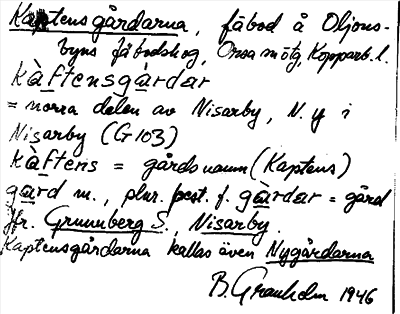 Kaptensgårdarna, fäbod å Oljons-
byns fäbodskog, Orsa sn o tg, Kopparb. l.
kàftensgàrdar
= norra delen av Nisarby, N. y i
Nisarby (G 103)
kàftens = gårdsnamn (Kaptens)
gàrd m., plur. best. f. gàrdar = gård
Jfr. Grunnberg S., Nisarby.
Kaptensgårdarna kallas även Nygårdarna
B. Granholm 1946